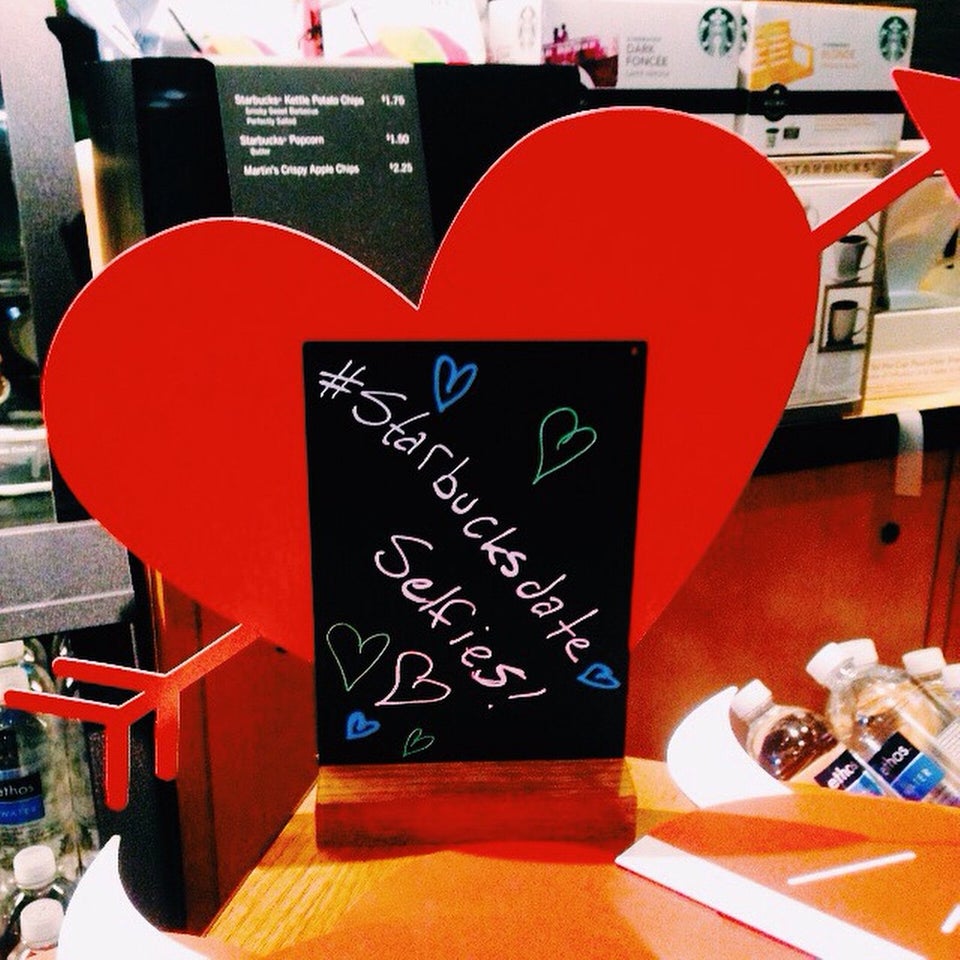 DARK
FONCÉE
Starbucks® Kettle Potato Chips $1.75
Smoky Sweet Barbecue
Perfectly Salted
Starbucks® Popcorn $1.50
Butter
Martin's Crispy Apple Chips $2.25
STARBUCKS
#Starbucksdate
Selfies!
ethos
WATER
ethos
ethos
WATER